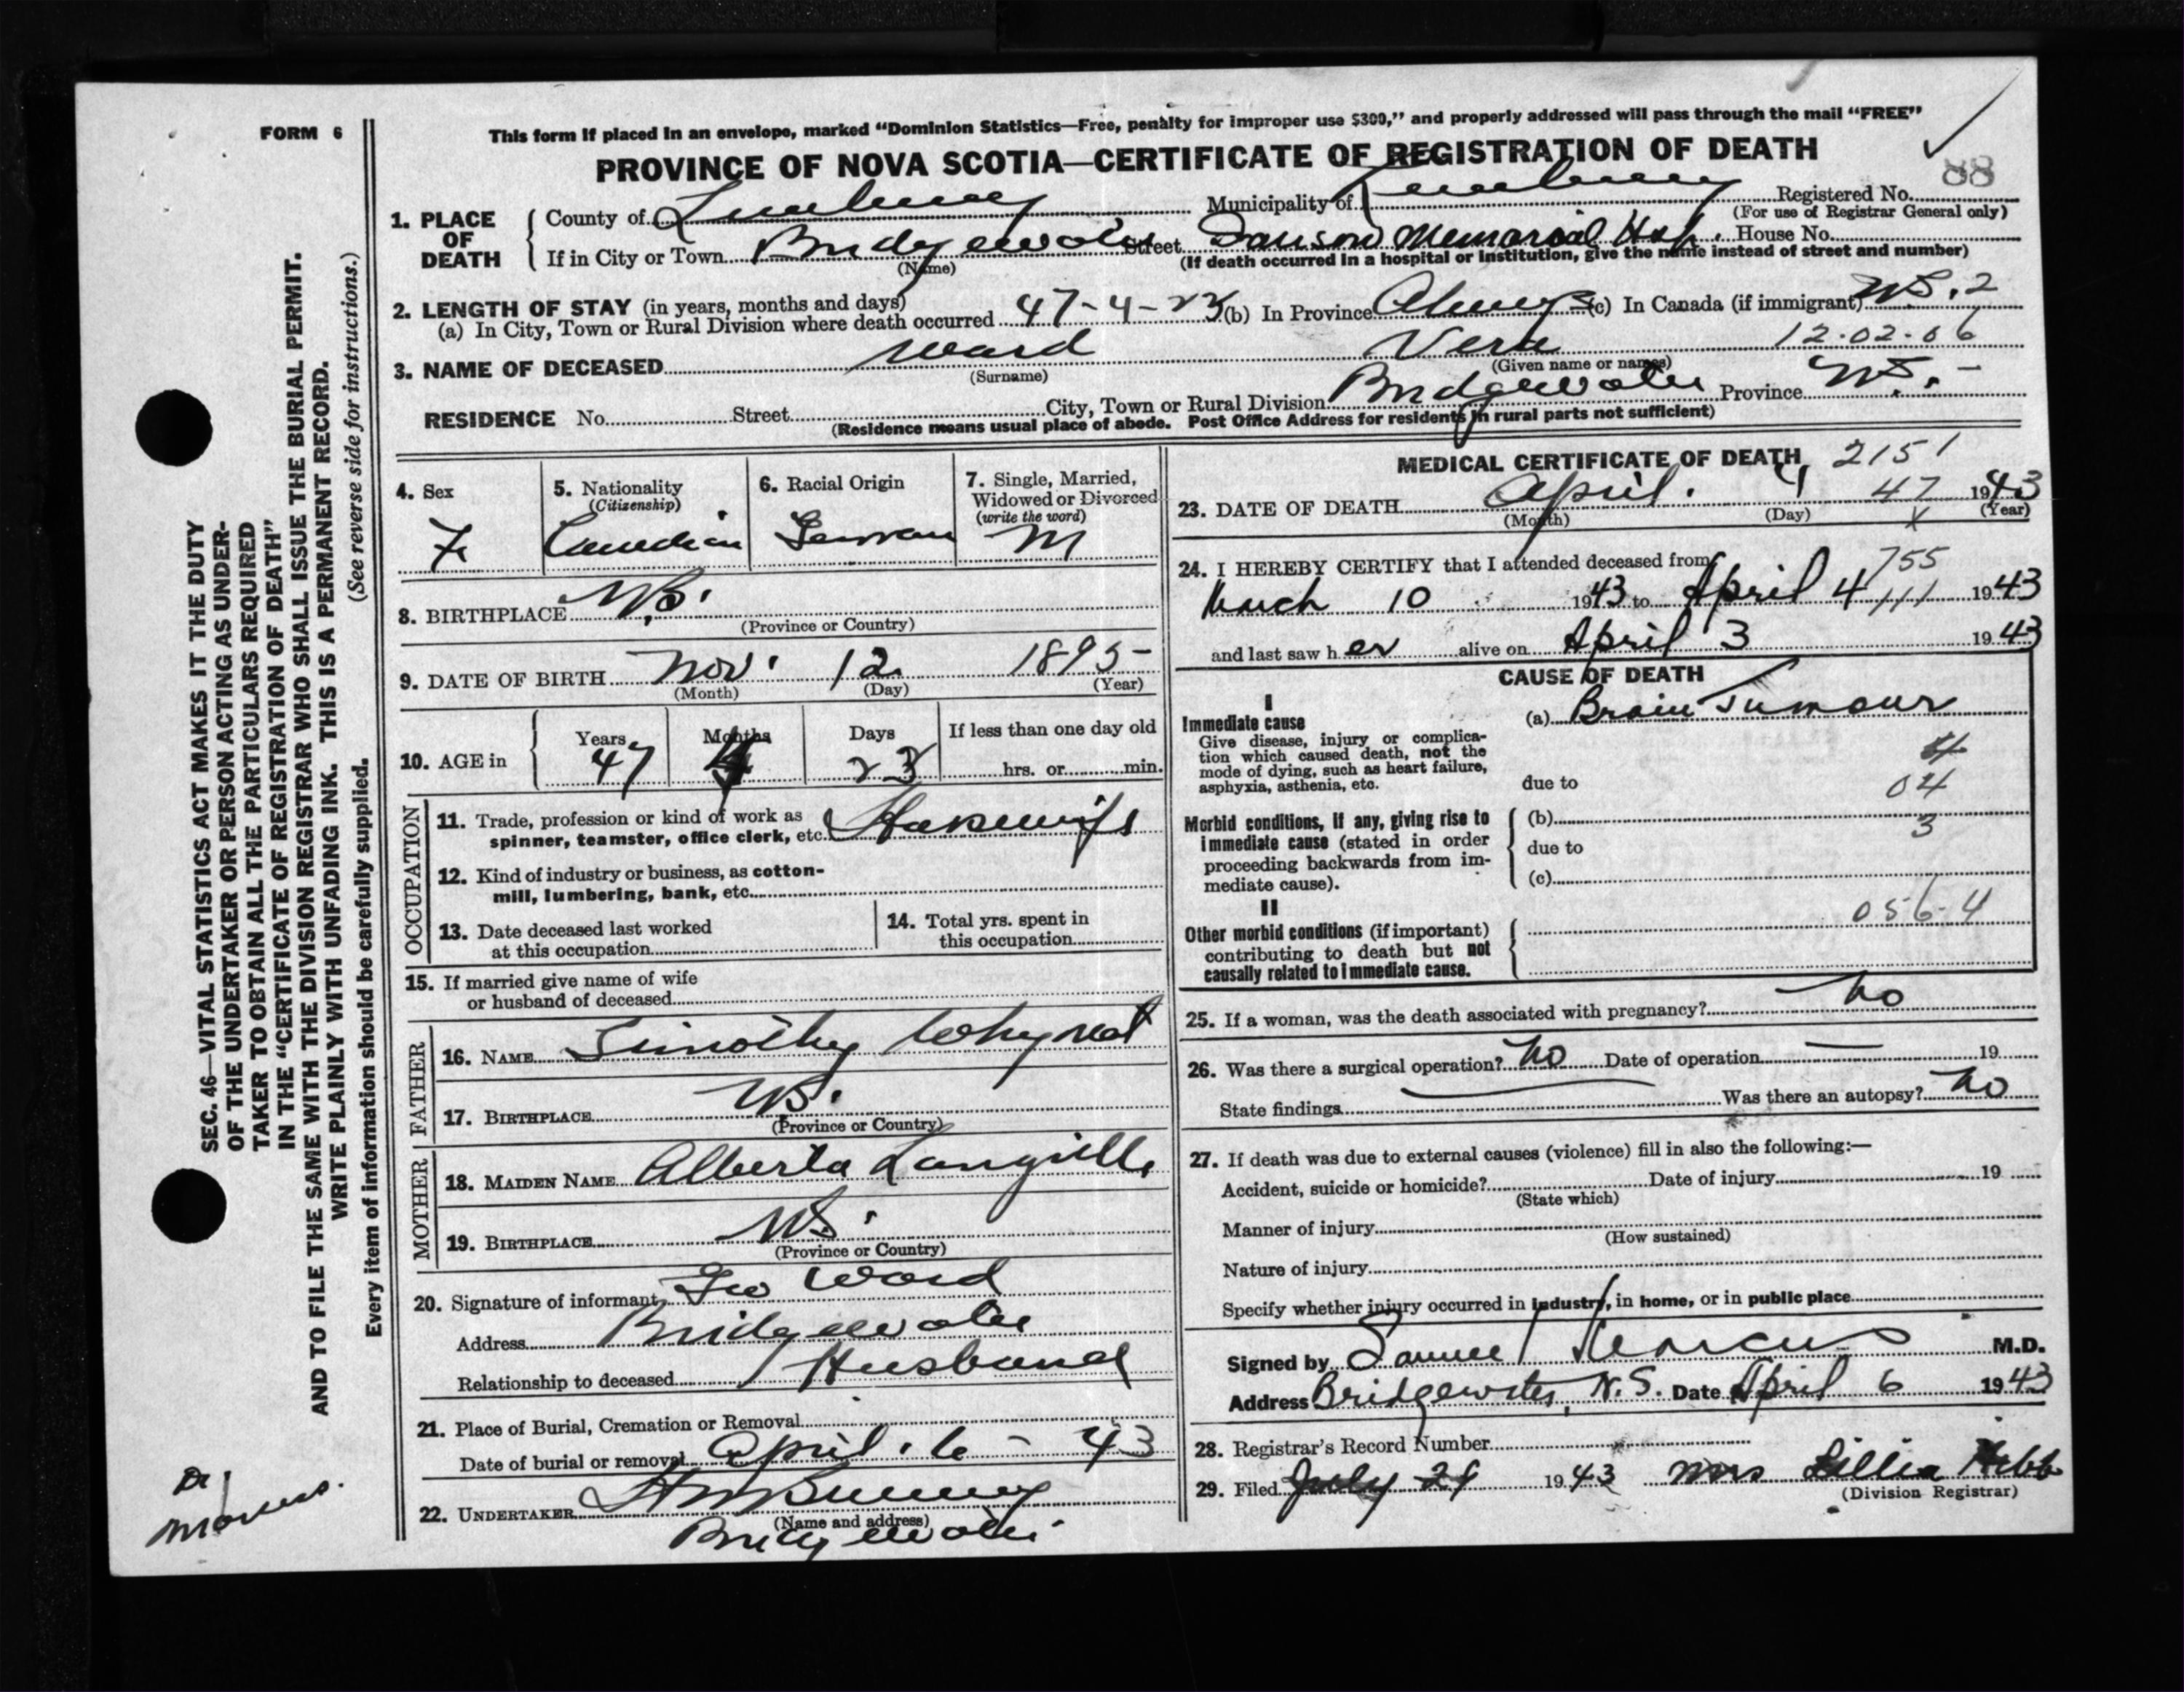 FORM 6
This form if placed in an envelope, marked "Dominion Statistics—Free, penalty for improper use $300," and properly addressed will pass through the mail "FREE"
PROVINCE OF NOVA SCOTIA—CERTIFICATE OF REGISTRATION OF DEATH
88
1. PLACE OF DEATH
County of Lunenburg Municipality of Lunenburg Registered No.
(For use of Registrar General only)
If in City or Town Bridgewater Street Dawson Memorial Hosp. House No.
(Name) (If death occurred in a hospital or institution, give the name instead of street and number)
2. LENGTH OF STAY (in years, months and days)
(a) In City, Town or Rural Division where death occurred 47-4-23 (b) In Province Always (c) In Canada (if immigrant) NS. 2
12-02-06
3. NAME OF DECEASED Ward Vera
(Surname) (Given name or names)
RESIDENCE No. Street City, Town or Rural Division Bridgewater Province N.S. -
(Residence means usual place of abode. Post Office Address for residents in rural parts not sufficient)
4. Sex
F.
5. Nationality
(Citizenship)
Canadian
6. Racial Origin
German
7. Single, Married,
Widowed or Divorced
(write the word)
M
8. BIRTHPLACE N.S.
(Province or Country)
9. DATE OF BIRTH Nov. 12 1895
(Month) (Day) (Year)
10. AGE in
Years Months Days If less than one day old
47 4 23 hrs. or min.
OCCUPATION
11. Trade, profession or kind of work as
spinner, teamster, office clerk, etc. Housewife
12. Kind of industry or business, as cotton-
mill, lumbering, bank, etc.
13. Date deceased last worked
at this occupation
14. Total yrs. spent in
this occupation
15. If married give name of wife
or husband of deceased
FATHER
16. NAME Timothy Whynot
17. BIRTHPLACE N.S.
(Province or Country)
MOTHER
18. MAIDEN NAME Alberta Langille
19. BIRTHPLACE N.S.
(Province or Country)
20. Signature of informant Geo Ward
Address Bridgewater
Relationship to deceased Husband
21. Place of Burial, Cremation or Removal
Date of burial or removal April. 6 - 43
22. UNDERTAKER
(Name and address)
Bridgewater
MEDICAL CERTIFICATE OF DEATH 2151
23. DATE OF DEATH April. 4 47 1943
(Month) (Day) (Year)
X
24. I HEREBY CERTIFY that I attended deceased from 755
March 10 1943 to April 4 111 1943
and last saw her alive on April 3 1943
CAUSE OF DEATH
I
Immediate cause
Give disease, injury or complica-
tion which caused death, not the
mode of dying, such as heart failure,
asphyxia, asthenia, etc.
(a) Brain Tumour
4
due to 04
Morbid conditions, if any, giving rise to
immediate cause (stated in order
proceeding backwards from im-
mediate cause).
(b)
3
due to
(c)
II
056-4
Other morbid conditions (if important)
contributing to death but not
causally related to immediate cause.
25. If a woman, was the death associated with pregnancy? No
26. Was there a surgical operation? No Date of operation — 19
State findings Was there an autopsy? No
27. If death was due to external causes (violence) fill in also the following:—
Accident, suicide or homicide? Date of injury 19
(State which)
Manner of injury
(How sustained)
Nature of injury
Specify whether injury occurred in industry, in home, or in public place
Signed by Samuel Marcus M.D.
Address Bridgewater, N.S. Date April 6 1943
28. Registrar's Record Number
29. Filed July 29 1943 Mrs Lillia Hebb
(Division Registrar)
SEC. 46—VITAL STATISTICS ACT MAKES IT THE DUTY
OF THE UNDERTAKER OR PERSON ACTING AS UNDER-
TAKER TO OBTAIN ALL THE PARTICULARS REQUIRED
IN THE "CERTIFICATE OF REGISTRATION OF DEATH"
AND TO FILE THE SAME WITH THE DIVISION REGISTRAR WHO SHALL ISSUE THE BURIAL PERMIT.
WRITE PLAINLY WITH UNFADING INK. THIS IS A PERMANENT RECORD.
Every item of information should be carefully supplied. (See reverse side for instructions.)
Dr
Marcus.